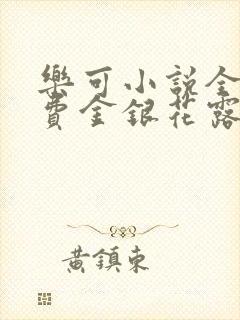 樂可小說全
費金銀花露
黃鎮東